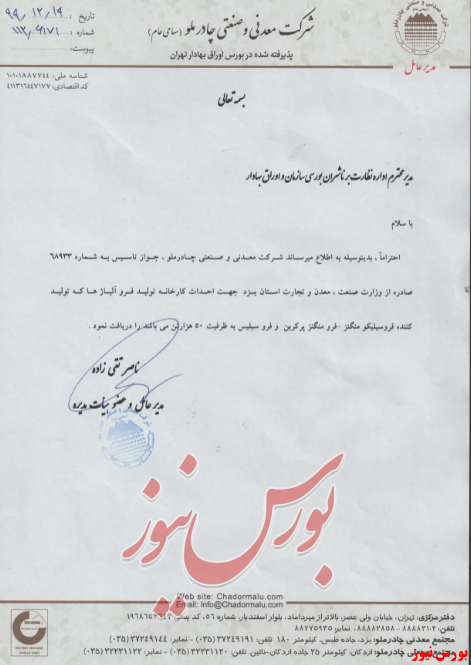 شرکت معدنی و صنعتی چادرملو (سهامی عام)
پذیرفته شده در بورس اوراق بهادار تهران
تاریخ : ۹۹/۱۲/۱۹
شماره :
پیوست:
مدیرعامل
شناسه ملی: ۱۰۱۰۱۸۸۷۷۴۴
کد اقتصادی: ۴۱۱۳۱۶۴۴۷۱۷۷
بسمه تعالی
مدیر محترم اداره نظارت بر ناشران بورسی سازمان و اوراق بهادار
با سلام
احتراماً ، بدینوسیله به اطلاع میرساند شرکت معدنی و صنعتی چادرملو ، جواز تاسیس به شماره ۶۸۹۳۳
صادره از وزارت صنعت ، معدن و تجارت استان یزد جهت احداث کارخانه تولید فرو آلیاژ ها که تولید
کننده فروسیلیکو منگنز -فرو منگنز پرکربن و فرو سیلیس به ظرفیت ۵۰ هزارتن می باشد را دریافت نمود .
ناصر تقی زاده
مدیر عامل و عضو هیأت مدیره
بورس نیوز
Web site: Chadormalu.com
Email: Info@Chadormalu.com
دفتر مرکزی: تهران، خیابان ولی عصر، بالاتر از میرداماد، بلوار اسفندیار، شماره ۵۶، کد پستی
تلفن: ۲-۸۸۸۸۳۱۰۰ - ۸۸۸۸۲۸۵۸ - نمابر: ۸۸۷۷۵۹۳۵
مجتمع معدنی چادرملو: یزد، جاده طبس، کیلومتر ۱۸۰ تلفن: ۳۷۲۴۹۱۹۱ (۰۳۵) - نمابر: ۳۷۲۴۹۱۴۴ (۰۳۵)
مجتمع صنعتی چادرملو: اردکان، کیلومتر ۲۵ جاده اردکان-نائین، تلفن: ۳۲۲۳۱۱۲۰ (۰۳۵) - نمابر: ۳۲۲۳۱۱۲۲ (۰۳۵)
بورس نیوز